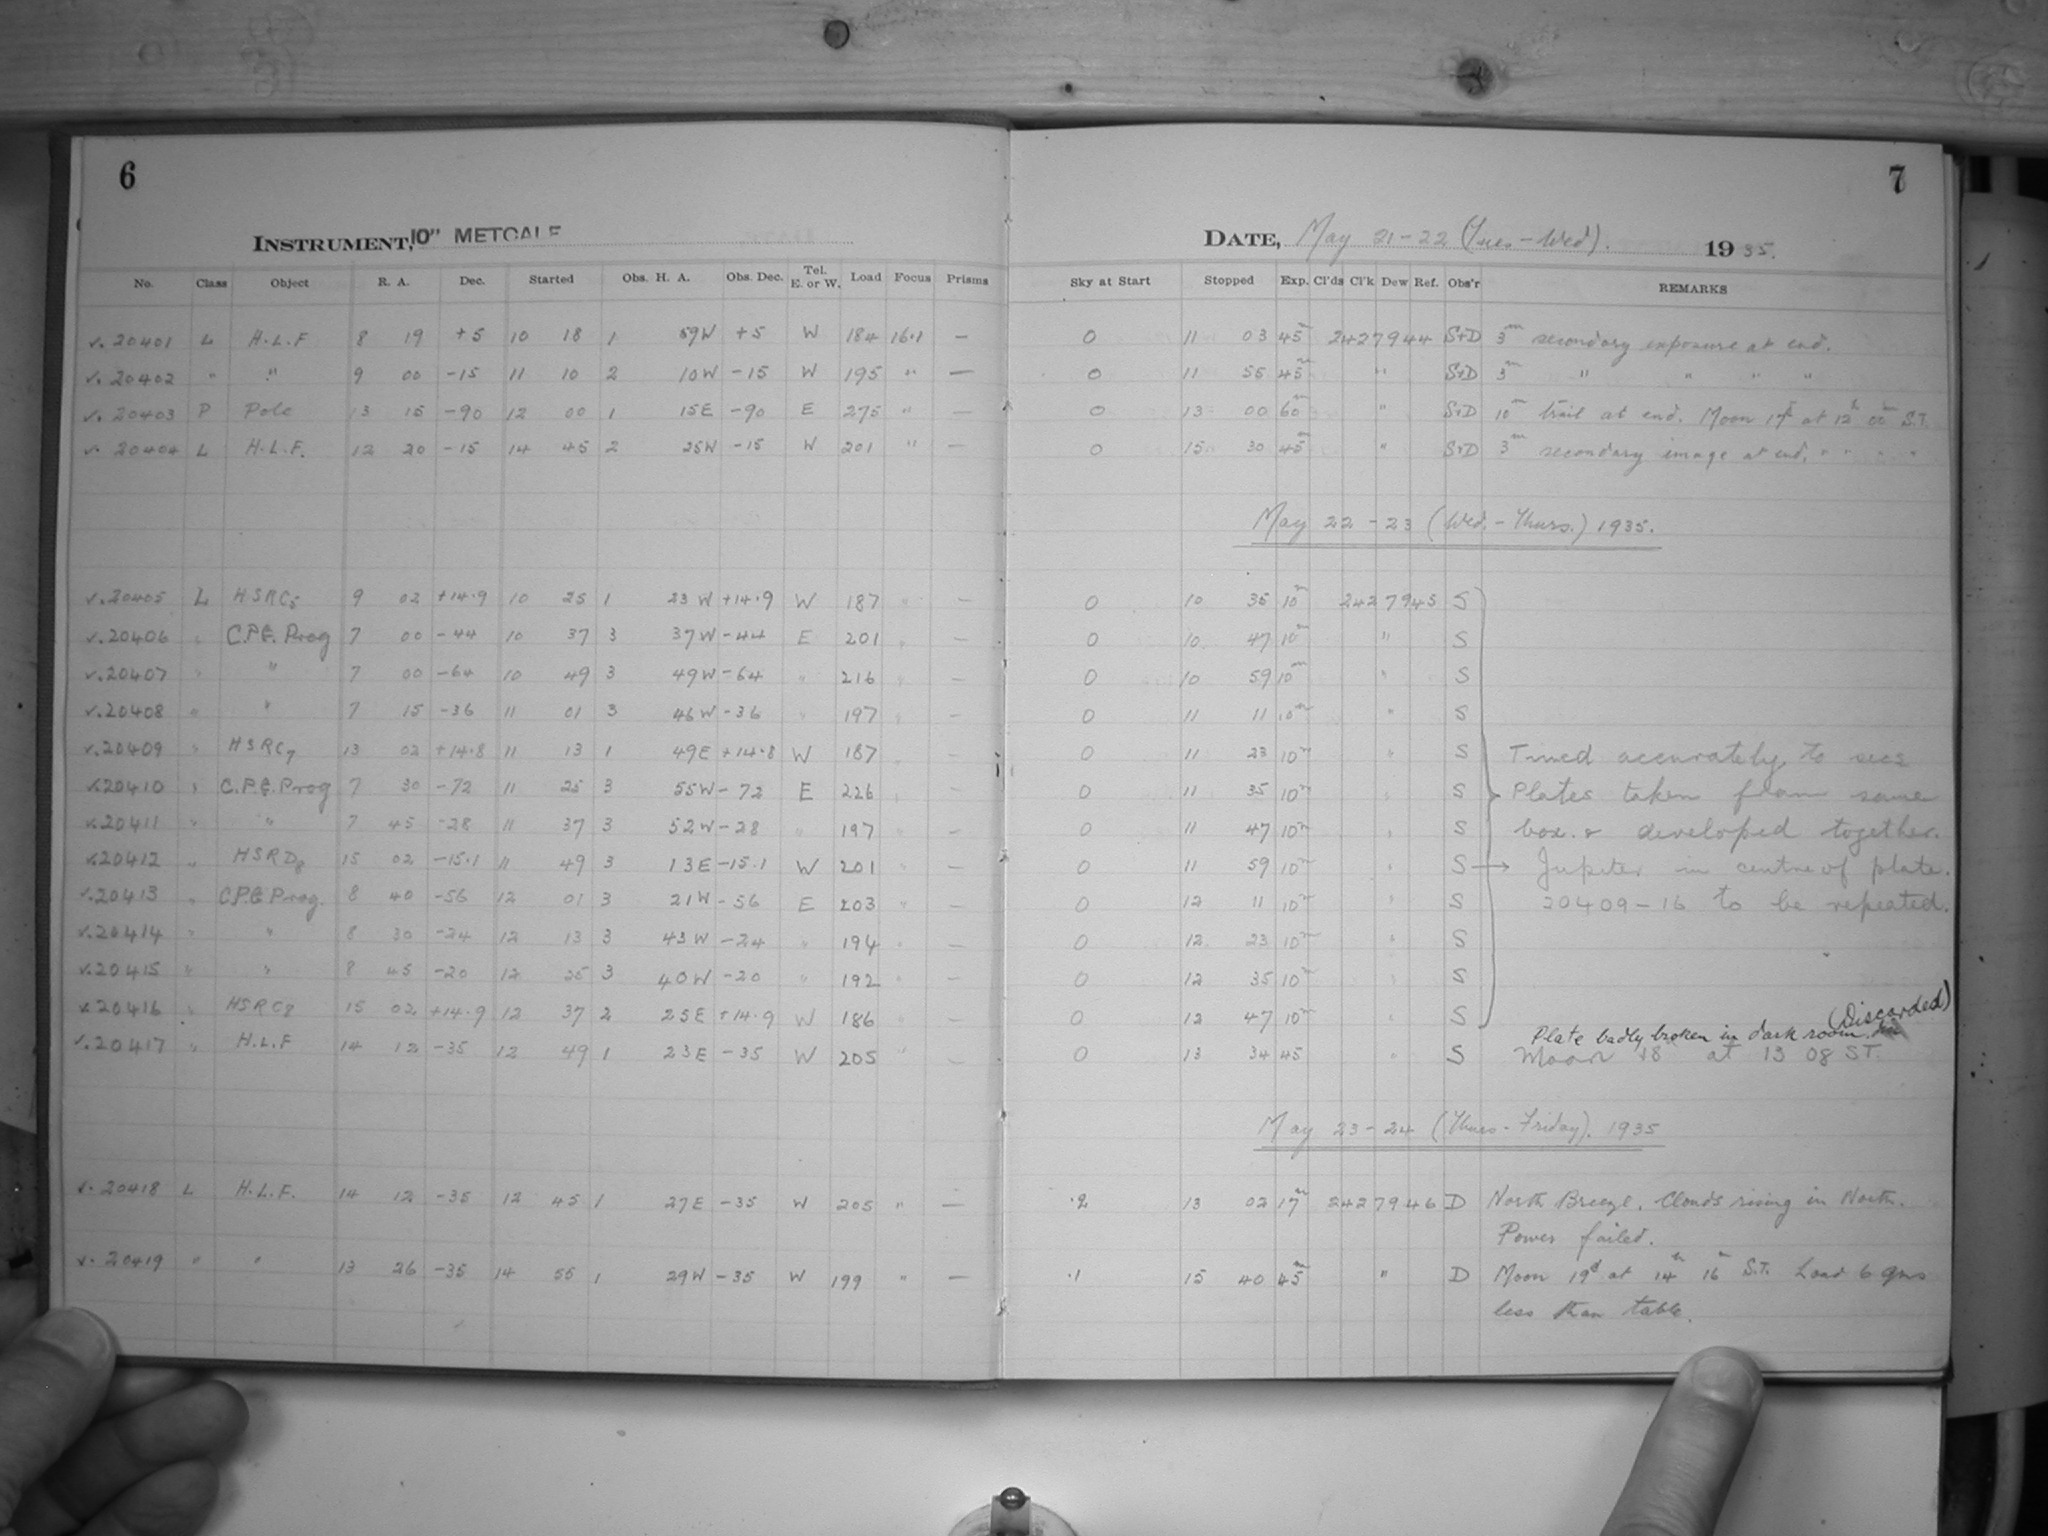 6
7
INSTRUMENT, 10" METCALF
DATE, May 21-22 (Tues-Wed). 1935.
No. Class Object R. A. Dec. Started Obs. H. A. Obs. Dec. Tel. E. or W. Load Focus Prisms Sky at Start Stopped Exp. Cl'ds Cl'k Dew Ref. Obs'r REMARKS
20401 L H.L.F 8 19 +5 10 18 1 59W +5 W 184 16.1 — 0 11 03 45m 2427944 S+D 3m secondary exposure at end.
20402 " " 9 00 -15 11 10 2 10W -15 W 195 " — 0 11 55 45m " S+D 3m " " " "
20403 P Pole 13 15 -90 12 00 1 15E -90 E 275 " — 0 13 00 60m " S+D 10m trail at end. Moon 17d at 12h 00m S.T.
20404 L H.L.F. 12 20 -15 14 45 2 25W -15 W 201 " — 0 15 30 45m " S+D 3m secondary image at end. " " " "
May 22-23 (Wed.-Thurs.) 1935.
20405 L HSRC5 9 02 +14.9 10 25 1 23W +14.9 W 187 " — 0 10 35 10m 2427945 S
20406 " C.P.E. Prog 7 00 -44 10 37 3 37W -44 E 201 " — 0 10 47 10m " S
20407 " " 7 00 -64 10 49 3 49W -64 " 216 " — 0 10 59 10m " S
20408 " " 7 15 -36 11 01 3 46W -36 " 197 " — 0 11 11 10m " S
20409 " HSRC7 13 02 +14.8 11 13 1 49E +14.8 W 187 " — 0 11 23 10m " S Timed accurately to secs
20410 " C.P.E. Prog 7 30 -72 11 25 3 55W -72 E 226 " — 0 11 35 10m " S Plates taken from same
20411 " " 7 45 -28 11 37 3 52W -28 " 197 " — 0 11 47 10m " S box. & developed together.
20412 " HSRD8 15 02 -15.1 11 49 3 13E -15.1 W 201 " — 0 11 59 10m " S → Jupiter in centre of plate.
20413 " C.P.E Prog. 8 40 -56 12 01 3 21W -56 E 203 " — 0 12 11 10m " S 20409-16 to be repeated.
20414 " " 8 30 -24 12 13 3 43W -24 " 194 " — 0 12 23 10m " S
20415 " " 8 45 -20 12 25 3 40W -20 " 192 " — 0 12 35 10m " S
20416 " HSRC8 15 02 +14.9 12 37 2 25E +14.9 W 186 " — 0 12 47 10m " S
Plate badly broken in dark room. (Discarded)
20417 " H.L.F 14 12 -35 12 49 1 23E -35 W 205 " — 0 13 34 45 " S Moon 18 at 13 08 ST.
May 23-24 (Thurs-Friday). 1935
20418 L H.L.F. 14 12 -35 12 45 1 27E -35 W 205 " — .2 13 02 17m 2427946 D North Breeze. Clouds rising in North.
Power failed.
20419 " " 13 26 -35 14 55 1 29W -35 W 199 " — .1 15 40 45m " D Moon 19d at 14h 16m S.T. Load 6 gms
less than table.